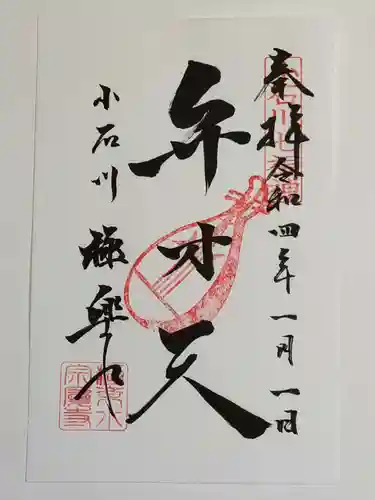 奉拝 令和四年一月一日
弁才天
小石川 極楽水